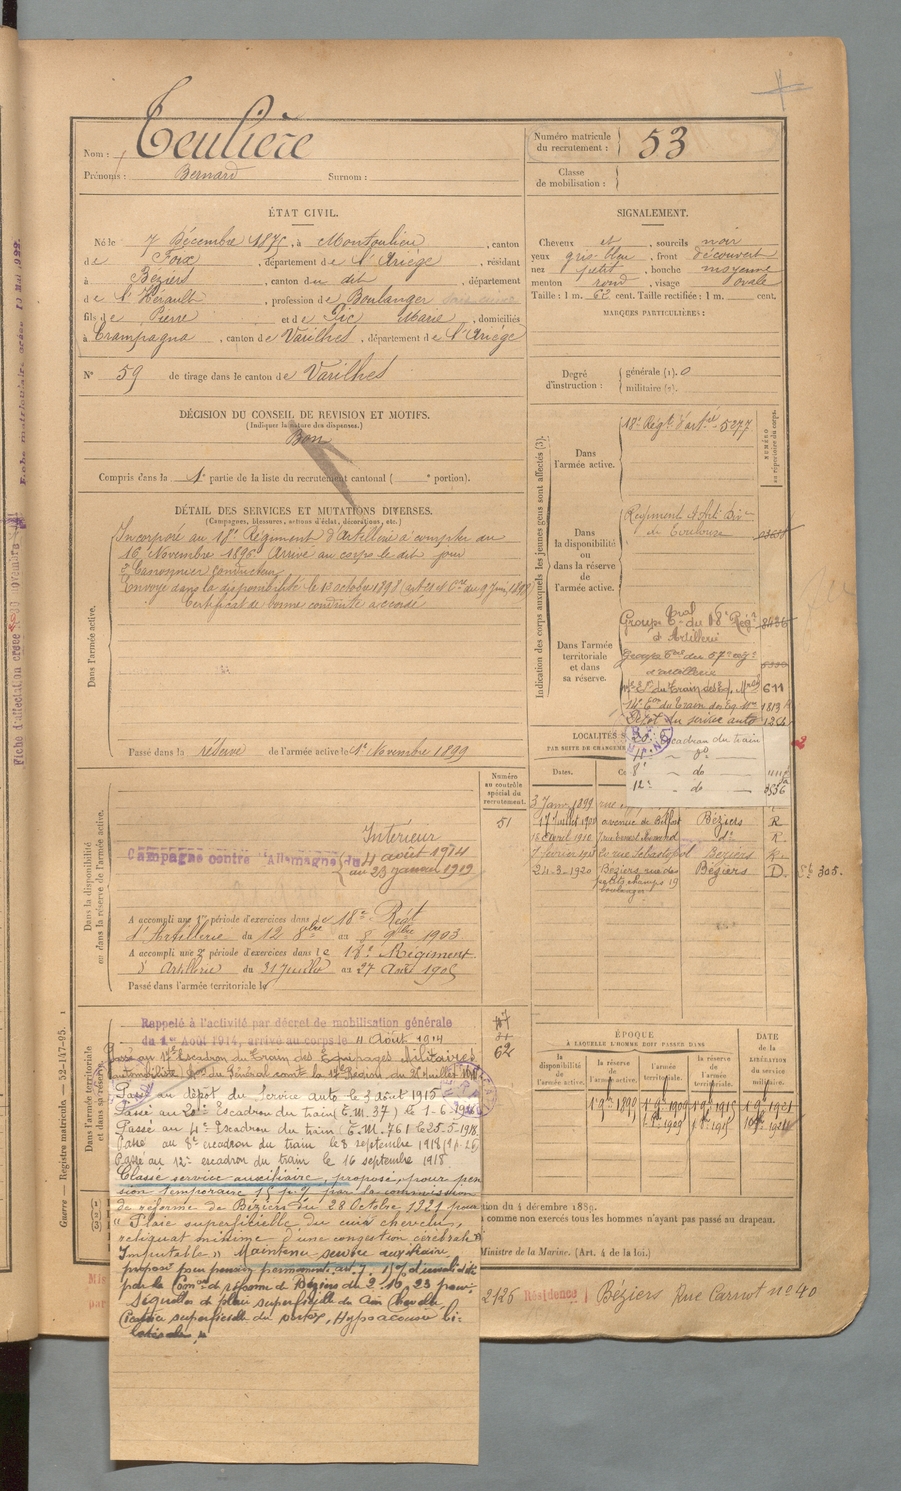 Teulière
Nom :
Prénoms : Bernard Surnom :
Numéro matricule du recrutement : 53
Classe de mobilisation :
ÉTAT CIVIL.
Né le 7 Décembre 1875, à Montoulieu, canton
de Foix, département de l'Ariége, résidant
à Béziers, canton du dit, département
de l'Hérault, profession de Boulanger
fils de Pierre et de Pic Marie, domiciliés
à Crampagna, canton de Varilhes, département de l'Ariége
N° 59 de tirage dans le canton de Varilhes
SIGNALEMENT.
Cheveux et, sourcils noir
yeux gris bleu, front découvert
nez petit, bouche moyenne
menton rond, visage ovale
Taille : 1 m. 62 cent. Taille rectifiée : 1 m. cent.
MARQUES PARTICULIÈRES :
Degré d'instruction : générale (1). 0
militaire (2).
DÉCISION DU CONSEIL DE REVISION ET MOTIFS.
(Indiquer la nature des dispenses.)
Bon
Compris dans la 1e partie de la liste du recrutement cantonal ( e portion).
DÉTAIL DES SERVICES ET MUTATIONS DIVERSES.
(Campagnes, blessures, actions d'éclat, décorations, etc.)
Dans l'armée active.
Incorporé au 18e Régiment d'Artillerie à compter du
16 Novembre 1896. Arrivé au corps le dit jour
2e Canonnier conducteur
Envoyé dans la disponibilité le 1 octobre 1898
Certificat de bonne conduite accordé
Passé dans la réserve de l'armée active le 1er Novembre 1899
Indication des corps auxquels les jeunes gens sont affectés (3).
NUMÉRO au répertoire du corps.
Dans l'armée active.
18e Régt d'artie 5277
Dans la disponibilité ou dans la réserve de l'armée active.
Régiment
de Toulouse
Dans l'armée territoriale et dans sa réserve.
Groupe Tral du 18e Régt
d'Artillerie
Groupe du 57e
d'artillerie
du Train des Eq. 611
du Train des Eq. 1813
Dépôt du service auto
cadron du train
8e do
12e do
LOCALITÉS S
PAR SUITE DE CHANGEME
Dates.
3 Janv 1899
17 Juillet 1900 avenue de Belfort Béziers R
15 avril 1910 do R
7 février 1915 rue Sebastopol Béziers R.
24-3-1920 Béziers, rue des petits champs 19 boulanger Béziers D.
305.
Numéro au contrôle spécial du recrutement.
51
Dans la disponibilité ou dans la réserve de l'armée active.
Intérieur
Campagne contre l'Allemagne (du 4 août 1914
au 23 janvier 1919
A accompli une 1re période d'exercices dans le 18e Régt
d'Artillerie du 12 8bre au 8 9bre 1903
A accompli une 2e période d'exercices dans le 18e Régiment
d'Artillerie du 31 Juillet au 27 Août 1905
Passé dans l'armée territoriale le
Dans l'armée territoriale et dans sa réserve.
Rappelé à l'activité par décret de mobilisation générale
du 1er Août 1914, arrivé au corps le 4 Août 1914
62
Passé au 17e Escadron du Train des Equipages Militaires
Passé au dépôt du Service Auto le 3 Août 1915
Passé au 20e Escadron du train (T.M. 37) le 1-6-
Passé au 4e Escadron du train (T.M. 761 le 25-5-1918
Passé au 8e escadron du train le 8 septembre 1918
Passé au 12e escadron du train le 16 septembre 1918
Classé service auxiliaire, proposé pour pen
sion temporaire 15 p % par la commission
de réforme de Béziers du 28 Octobre 1921 pour
"Plaie superficielle du cuir chevelu,
reliquat minime d'une congestion cérébrale"
Imputable" Maintenu service auxiliaire
proposé pour pension permanente
par la Con de réforme de Béziers du 2 16. 23 pour
séquelles de plaie superficielle du cuir chevelu
superficielle du , Hypoacousie bi-
latérale "
ÉPOQUE
À LAQUELLE L'HOMME DOIT PASSER DANS
la disponibilité de l'armée active.
la réserve de l'armée active.
l'armée territoriale.
la réserve de l'armée territoriale.
DATE de la LIBÉRATION du service militaire.
1er 9bre 1899
1er 8bre 1909
1er 8bre 1915
tion du 4 décembre 1889.
à comme non exercés tous les hommes n'ayant pas passé au drapeau.
Ministre de la Marine. (Art. 4 de la loi.)
2126 Résidence Béziers Rue Carnot n° 40
Guerre — Registre matricule — 52-147-95.